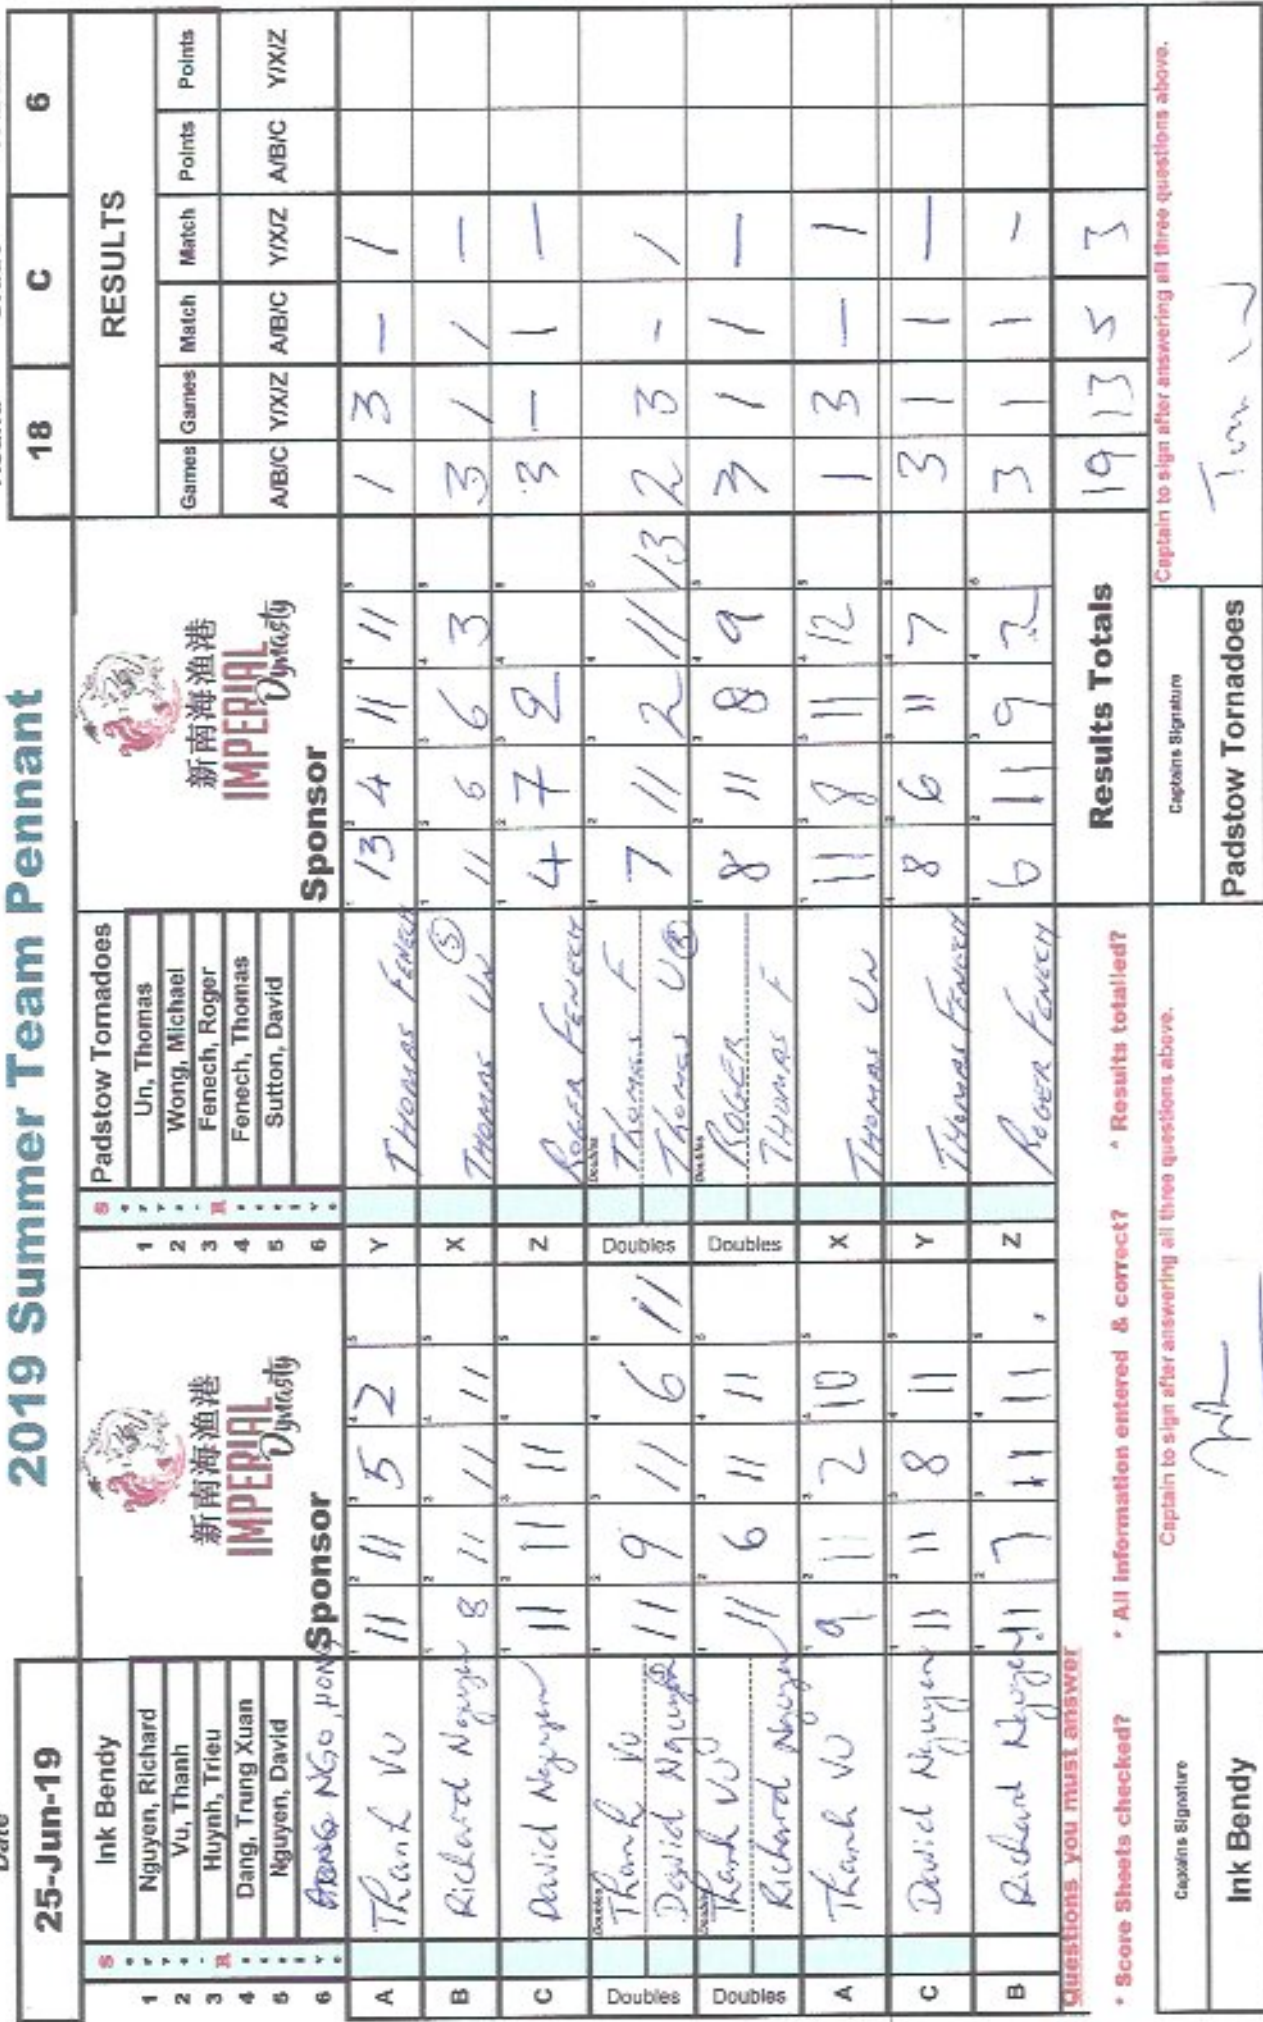 2019 Summer Team Pennant
Date
25-Jun-19
18 C 6
Ink Bendy
1 Nguyen, Richard
2 Vu, Thanh
3 Huynh, Trieu
4 Dang, Trung Xuan
5 Nguyen, David
6
新南海渔港
IMPERIAL
Dynasty
Sponsor
Padstow Tornadoes
1 Un, Thomas
2 Wong, Michael
3 Fenech, Roger
4 Fenech, Thomas
5 Sutton, David
6
新南海渔港
IMPERIAL
Dynasty
Sponsor
RESULTS
Games Games Match Match Points Points
A/B/C Y/X/Z A/B/C Y/X/Z A/B/C Y/X/Z
A Thanh Vu 11 11 5 2 Y THOMAS FENECH 13 4 11 11 1 3 — 1
B Richard Nguyen 8 11 11 11 X THOMAS UN (5) 11 6 6 3 3 1 1 —
C David Nguyen 11 11 11 Z ROGER FENECH 4 7 2 3 — 1 —
Doubles Thanh Vu 11 9 11 6 11 Doubles THOMAS F 7 11 2 11 13 2 3 - 1
David Nguyen THOMAS U
Doubles Thanh Vu 11 6 11 11 Doubles ROGER 8 11 8 9 3 1 1 —
Richard Nguyen THOMAS F
A Thanh Vu 9 11 2 10 X THOMAS UN 11 8 11 12 1 3 — 1
C David Nguyen 11 11 8 11 Y THOMAS FENECH 8 6 11 7 3 1 1 —
B Richard Nguyen 11 7 11 11 Z ROGER FENECH 6 11 9 2 3 1 1 -
Results Totals 19 13 5 3
Questions you must answer
* Score Sheets checked? * All information entered & correct? * Results totalled?
Captains Signature
Captain to sign after answering all three questions above.
Ink Bendy
Captains Signature
Captain to sign after answering all three questions above.
Padstow Tornadoes